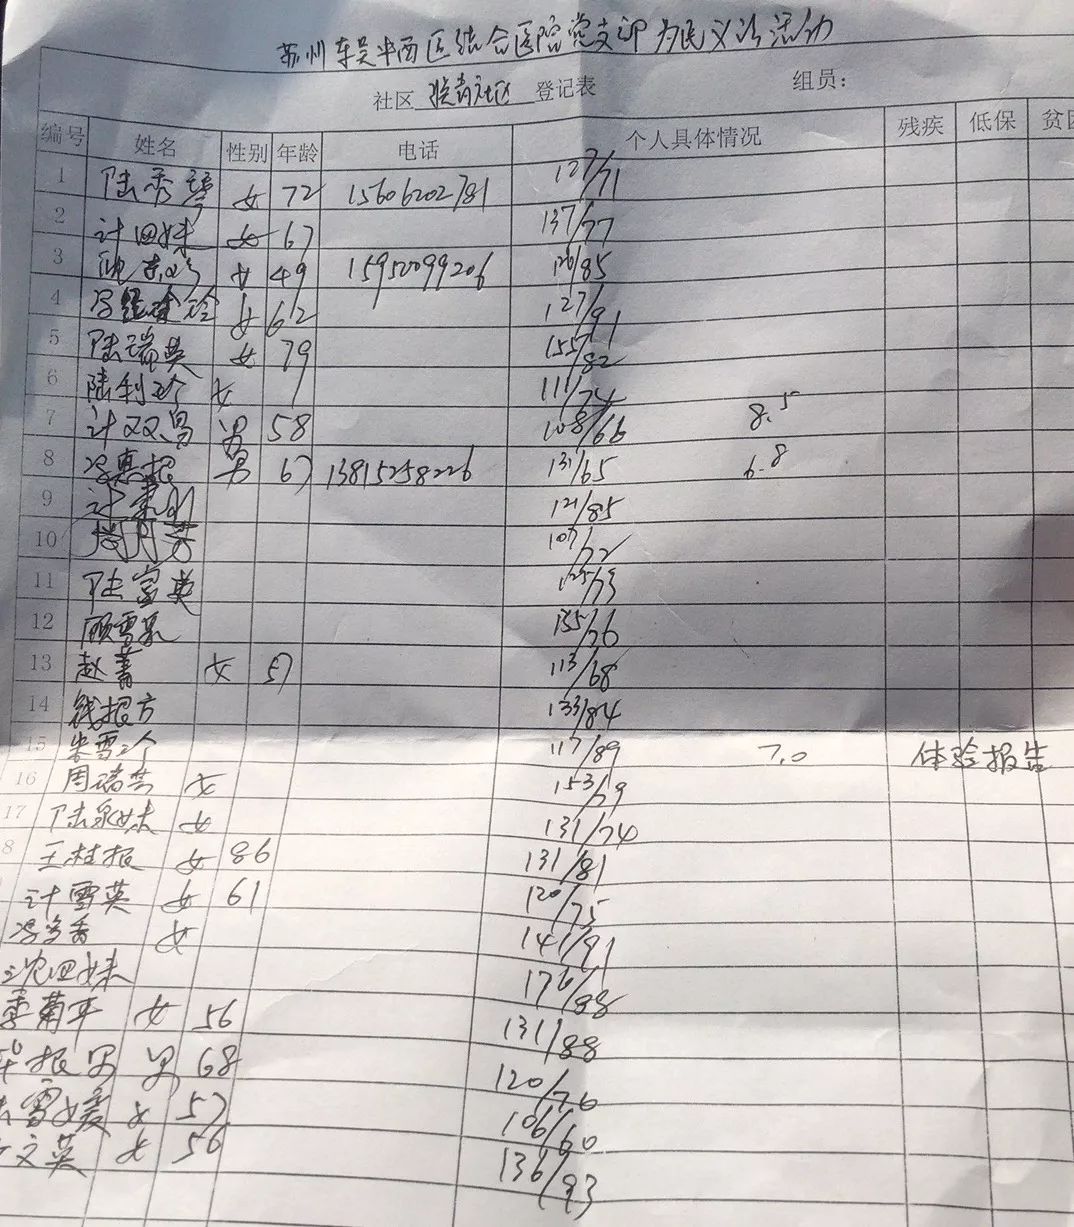 苏州东吴中西医结合医院党支部为民义诊活动
社区 登记表 组员：
编号 姓名 性别 年龄 电话 个人具体情况 残疾 低保 贫困
1 陆秀琴 女 72 15606202781 127/71
2 计四妹 女 67 137/77
3 女 49 15952099206 126/85
4 女 62 127/91
5 陆瑞英 女 79 155/82
6 陆利珍 女 111/74
7 计双男 男 58 108/66 8.5
8 冯真根 男 67 13815258226 131/65 6.8
9 121/85
10 107/72
11 陆宝英 125/73
12 顾雪泉 135/76
13 赵菁 女 57 113/68
14 钱根方 133/84
15 朱雪珍 117/89 7.0 体验报告
16 周瑞芳 女 153/79
17 陆泉妹 女 131/74
8 王桂根 女 86 131/81
计雪英 女 61 120/75
女 141/91
沈四妹 176/88
李菊平 女 56 131/88
根男 男 68 120/76
雪媛 女 57 106/60
文英 女 56 136/93